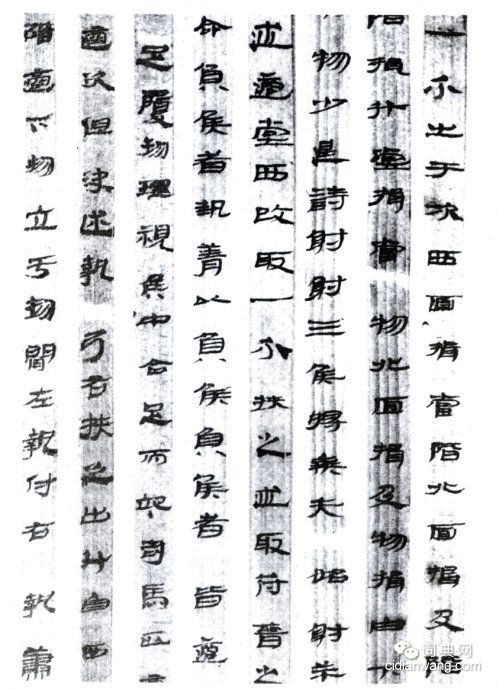 一个出于次西面揖當階北面揖及階
階揖升堂揖當物北面揖及物揖由下
物少退詩射射三侯將乘矢始射
述適堂西改取一个挾之述取付晉之
命負侯者執旌以負侯負侯者皆適
足履物視侯中合足而司馬正
適次但決述執弓右挾之出升自西
階適下物立于物間左執付右執簫
词典网
cidianwang.com